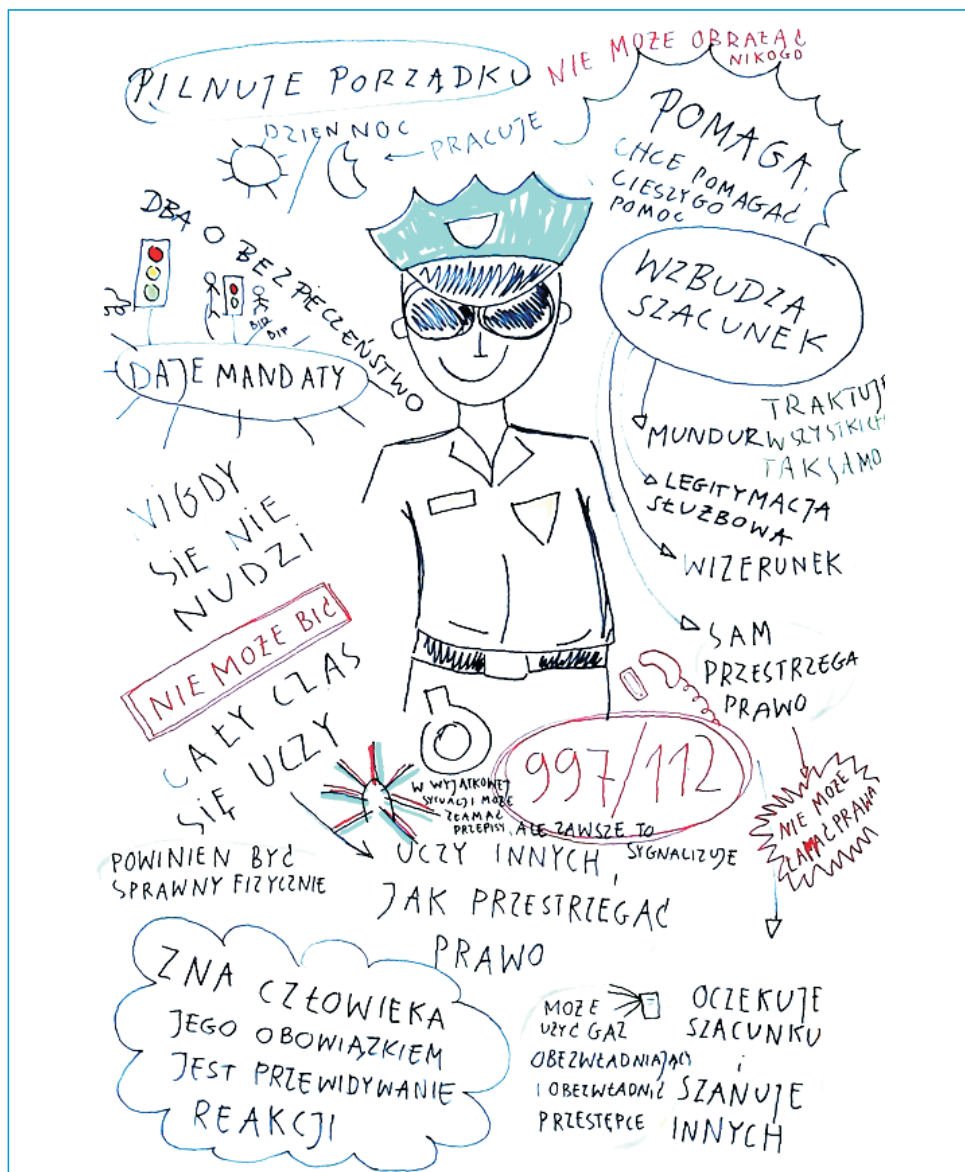 PILNUJE PORZĄDKU
NIE MOŻE OBRAŻAĆ
NIKOGO
DZIEŃ NOC
PRACUJE
POMAGA,
CHCE POMAGAĆ
CIESZY GO
POMOC
DBA O BEZPIECZEŃSTWO
WZBUDZA
SZACUNEK
BIP
BIP
DAJE MANDATY
MUNDUR
TRAKTUJE
WSZYSTKICH
TAK SAMO
LEGITYMACJA
SŁUŻBOWA
WIZERUNEK
NIGDY
SIE NIE
NUDZI
NIE MOŻE BIĆ
SAM
PRZESTRZEGA
PRAWO
CAŁY CZAS
SIĘ UCZY
997/112
NIE MOŻE
ŁAMAĆ PRAWA
W WYJĄTKOWEJ
SYTUACJI MOŻE
ZŁAMAĆ
PRZEPISY, ALE ZAWSZE TO
SYGNALIZUJE
POWINIEN BYĆ
SPRAWNY FIZYCZNIE
UCZY INNYCH,
JAK PRZESTRZEGAĆ
PRAWO
ZNA CZŁOWIEKA
JEGO OBOWIĄZKIEM
JEST PRZEWIDYWANIE
REAKCJI
MOŻE
UŻYĆ GAZ
OBEZWŁADNIAJĄCY
I OBEZWŁADNIĆ
PRZESTĘPCE
OCZEKUJE
SZACUNKU
i
SZANUJE
INNYCH